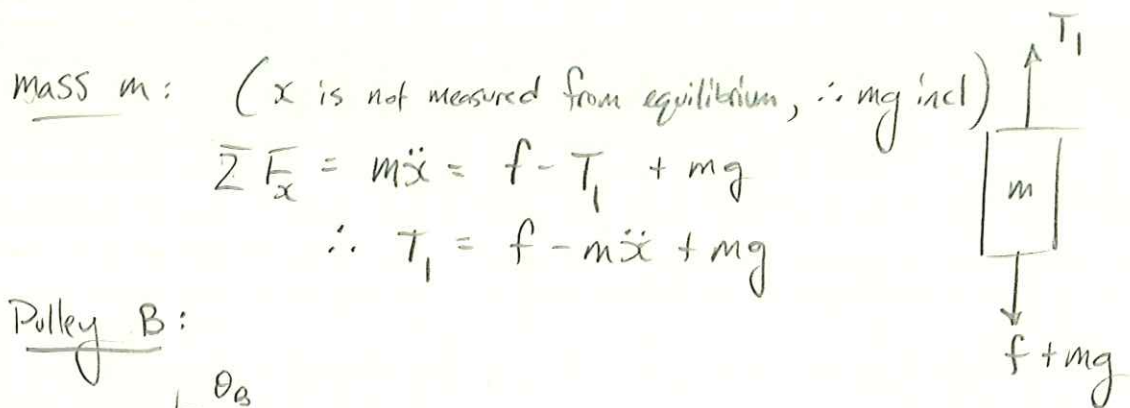 T₁
mass m: (x is not measured from equilibrium, ∴ mg incl)
ΣFₓ = mẍ = f - T₁ + mg
m
∴ T₁ = f - mẍ + mg
Pulley B:
f + mg
θ_B